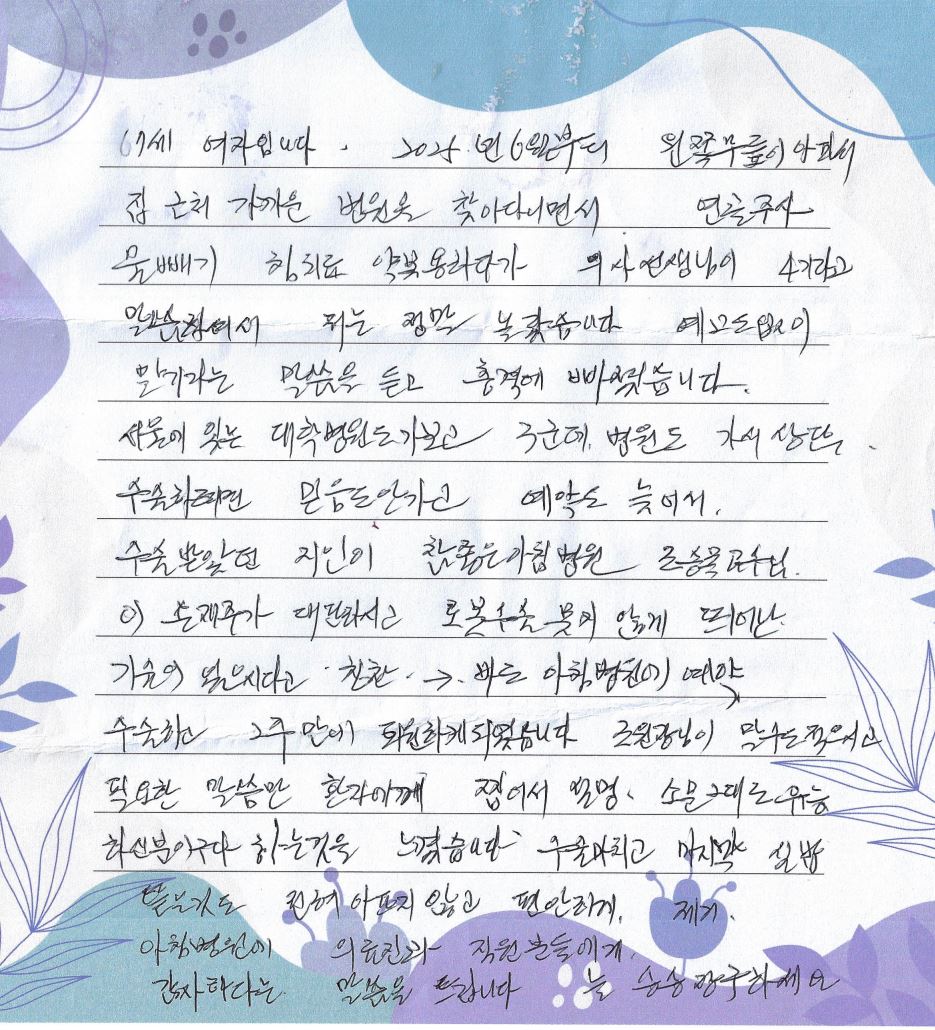 67세 여자입니다. 2025년 6월부터 왼쪽무릎이 아파서
집 근처 가까운 병원을 찾아다니면서 연골주사
물빼기 침치료 약복용하다가 의사선생님이 4기라고
말씀하셔서 저는 정말 놀랐습니다 예고도없이
말기라는 말씀을 듣고 충격에 빠졌습니다.
서울에 있는 대학병원도가보고 3군데. 병원도 가서 상담.
수술하려면 믿음도안가고 예약도 늦어서.
수술받았던 지인이 참좋은아침병원 조승목교수님.
이 손재주가 대단하시고 로봇수술 못지 않게 뛰어난
기술의 교수시다고 칭찬. → 바로 아침병원에 예약
수술하고 2주만에 퇴원하게되었습니다 조원장님이 말수도적으시고
필요한 말씀만 환자에게 찝어서 설명. 소문그대로 유능
하신분이구나 하는것을 느꼈습니다 수술마치고 마지막 실밥
뽑는것도 전혀 아프지 않고 편안하게. 제거.
아침병원에 의료진과 직원분들에게
감사하다는 말씀을 드립니다 늘 승승장구하세요